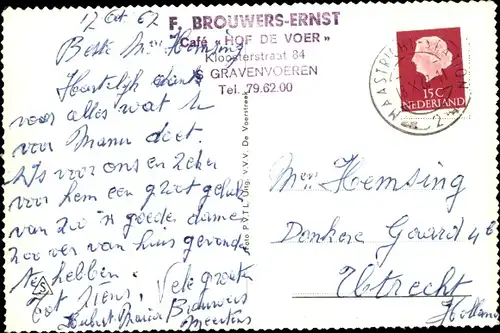 12 Oct 62
F. BROUWERS-ERNST
"Café „ HOF DE VOER »
Kloosterstraat 84
S GRAVENVOEREN
Tel. 79.62.00
Beste Mw Hemsing
Hartelijk dank
voor alles wat u
voor Manu doet.
Is voor ons en zeker
voor hem een groot geluk
van zoo 'n goede dame
zoo ver van huis gevonden
te hebben.
Tot ziens, Vele groet
Hubert Maria Brouwers
Meertens
Foto P.V.T.L. Uitg. V.V.V. De Voerstreek
MAASTRICHT STATION
15C
NEDERLAND
Mevr Hemsing
Donkere Gaard 4
Utrecht
Holland